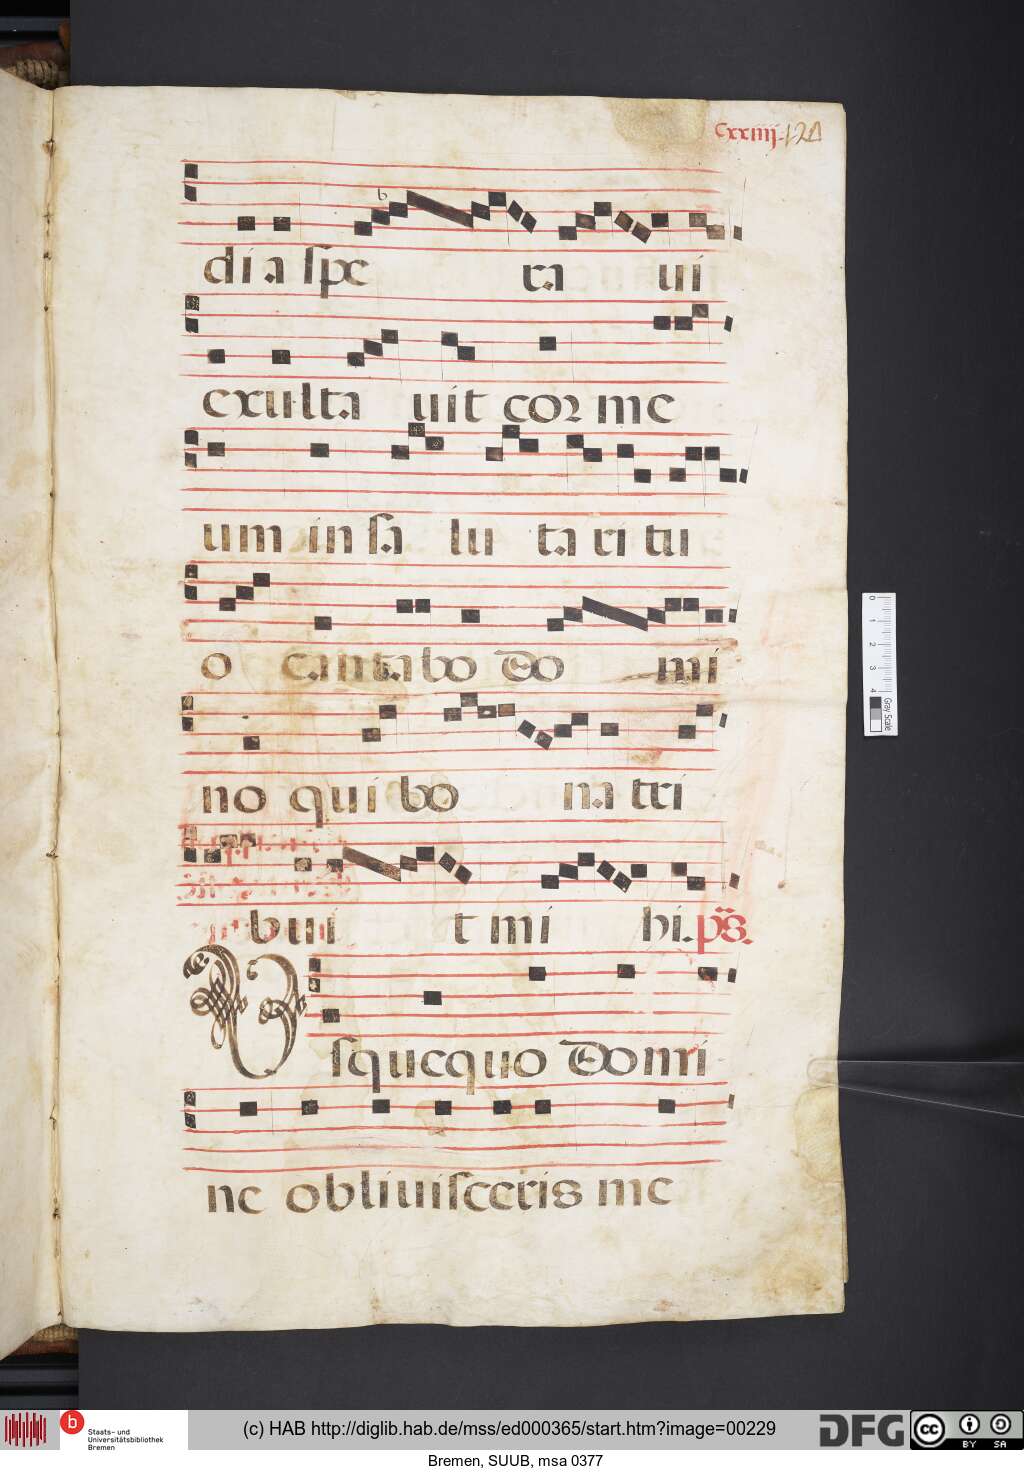 cxxiiij. 124
b
di a spe ra ui
exulta uit cor me
um in sa lu ta ri tu
o cantabo do mi
no qui bo na tri
bui t mi hi. ps.
Vsquequo domi
ne obliuisceris me
0 1 2 3 4
Gray Scale
b
Staats- und
Universitätsbibliothek
Bremen
(c) HAB http://diglib.hab.de/mss/ed000365/start.htm?image=00229
DFG
cc BY SA
Bremen, SUUB, msa 0377